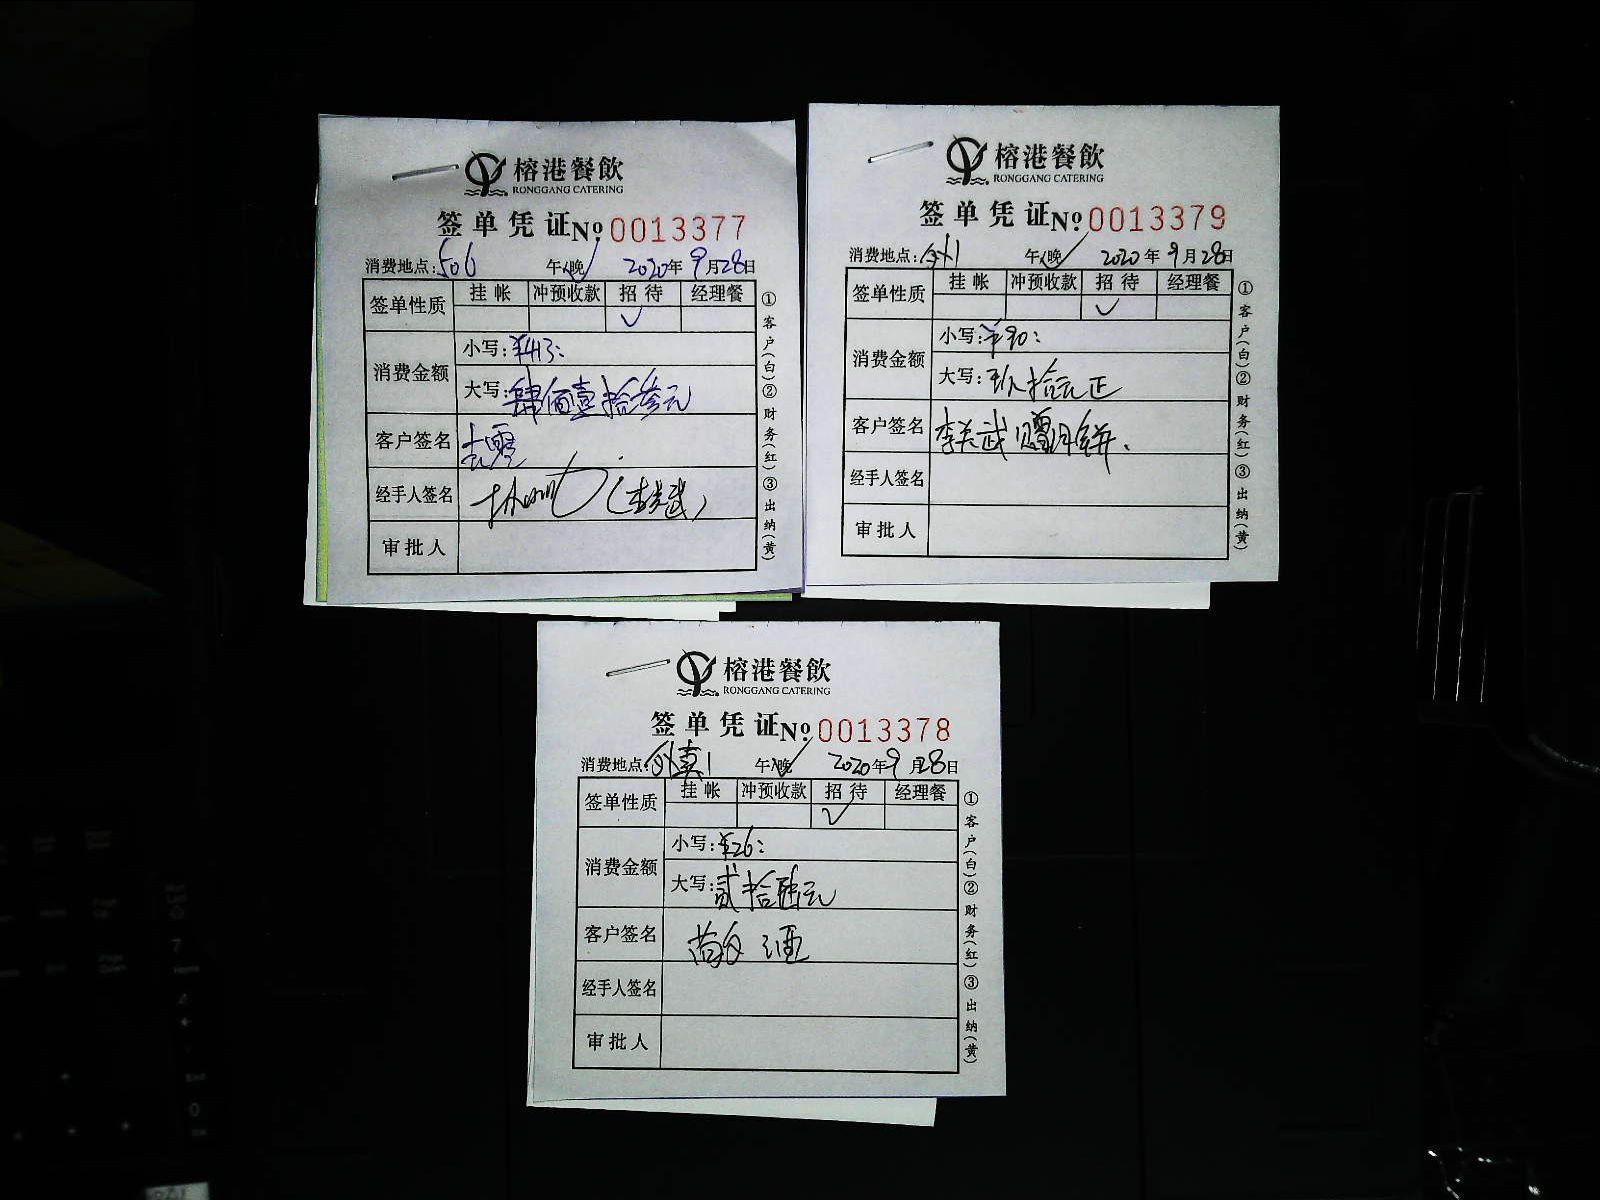 榕港餐飲
RONGGANG CATERING
签单凭证 No 0013377
消费地点:506 午/晚 2020年9月28日
签单性质 挂帐 冲预收款 招待 经理餐
✓
消费金额 小写:¥413:
大写:肆佰壹拾叁元
客户签名
经手人签名
审批人
①客户(白)②财务(红)③出纳(黄)
榕港餐飲
RONGGANG CATERING
签单凭证 No 0013379
消费地点:外1 午/晚 2020年9月28日
签单性质 挂帐 冲预收款 招待 经理餐
✓
消费金额 小写:¥90:
大写:玖拾元正
客户签名 李关武 赠月饼.
经手人签名
审批人
①客户(白)②财务(红)③出纳(黄)
榕港餐飲
RONGGANG CATERING
签单凭证 No 0013378
消费地点:外卖1 午/晚 2020年9月28日
签单性质 挂帐 冲预收款 招待 经理餐
✓
消费金额 小写:¥26:
大写:贰拾陆元
客户签名 酒
经手人签名
审批人
①客户(白)②财务(红)③出纳(黄)